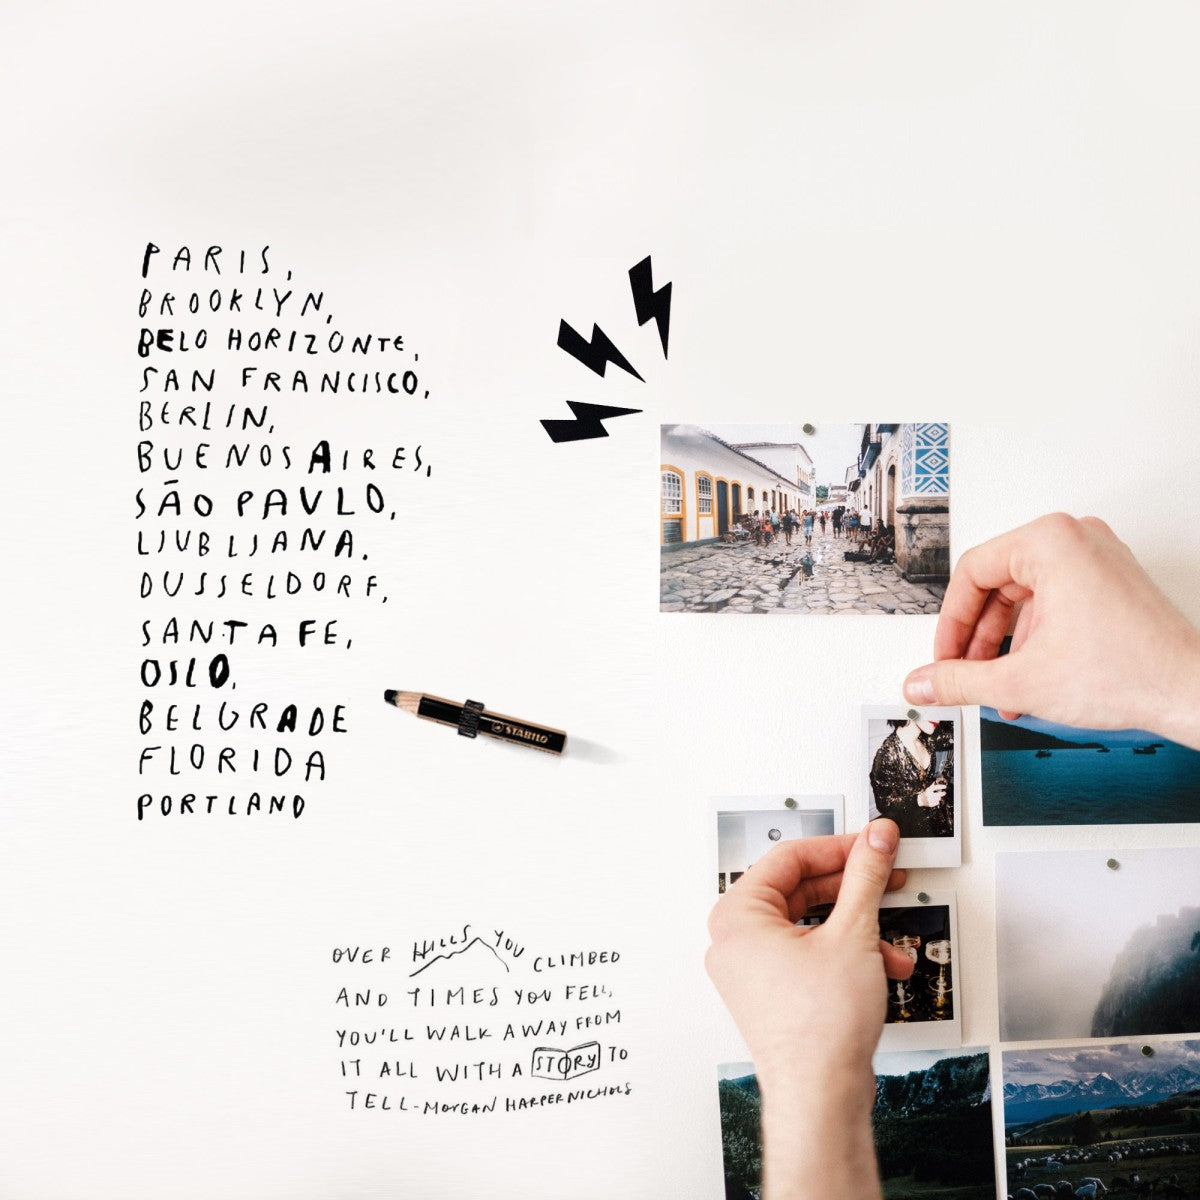 PARIS,
BROOKLYN,
BELO HORIZONTE,
SAN FRANCISCO,
BERLIN,
BUENOS AIRES,
SÃO PAULO,
LJUBLJANA.
DUSSELDORF,
SANTA FE,
OSLO,
BELGRADE
FLORIDA
PORTLAND
STABILO
OVER HILLS YOU CLIMBED
AND TIMES YOU FELL,
YOU'LL WALK AWAY FROM
IT ALL WITH A STORY TO
TELL - MORGAN HARPER NICHOLS